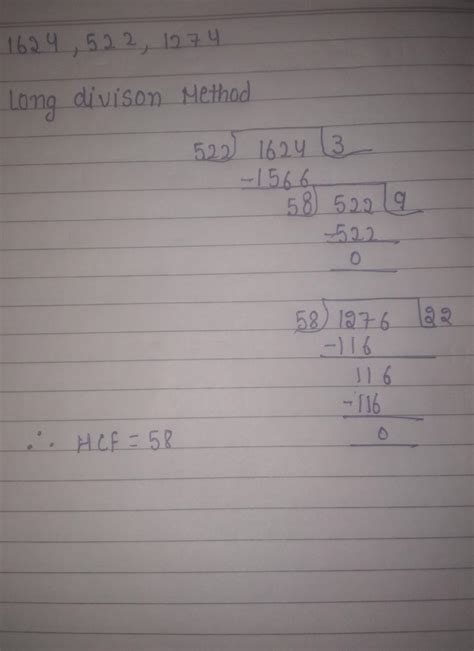 1624, 522, 1274
Long divison Method
522) 1624 (3
-1566
58) 522 (9
-522
0
58) 1276 (22
-116
116
-116
0
∴ HCF = 58